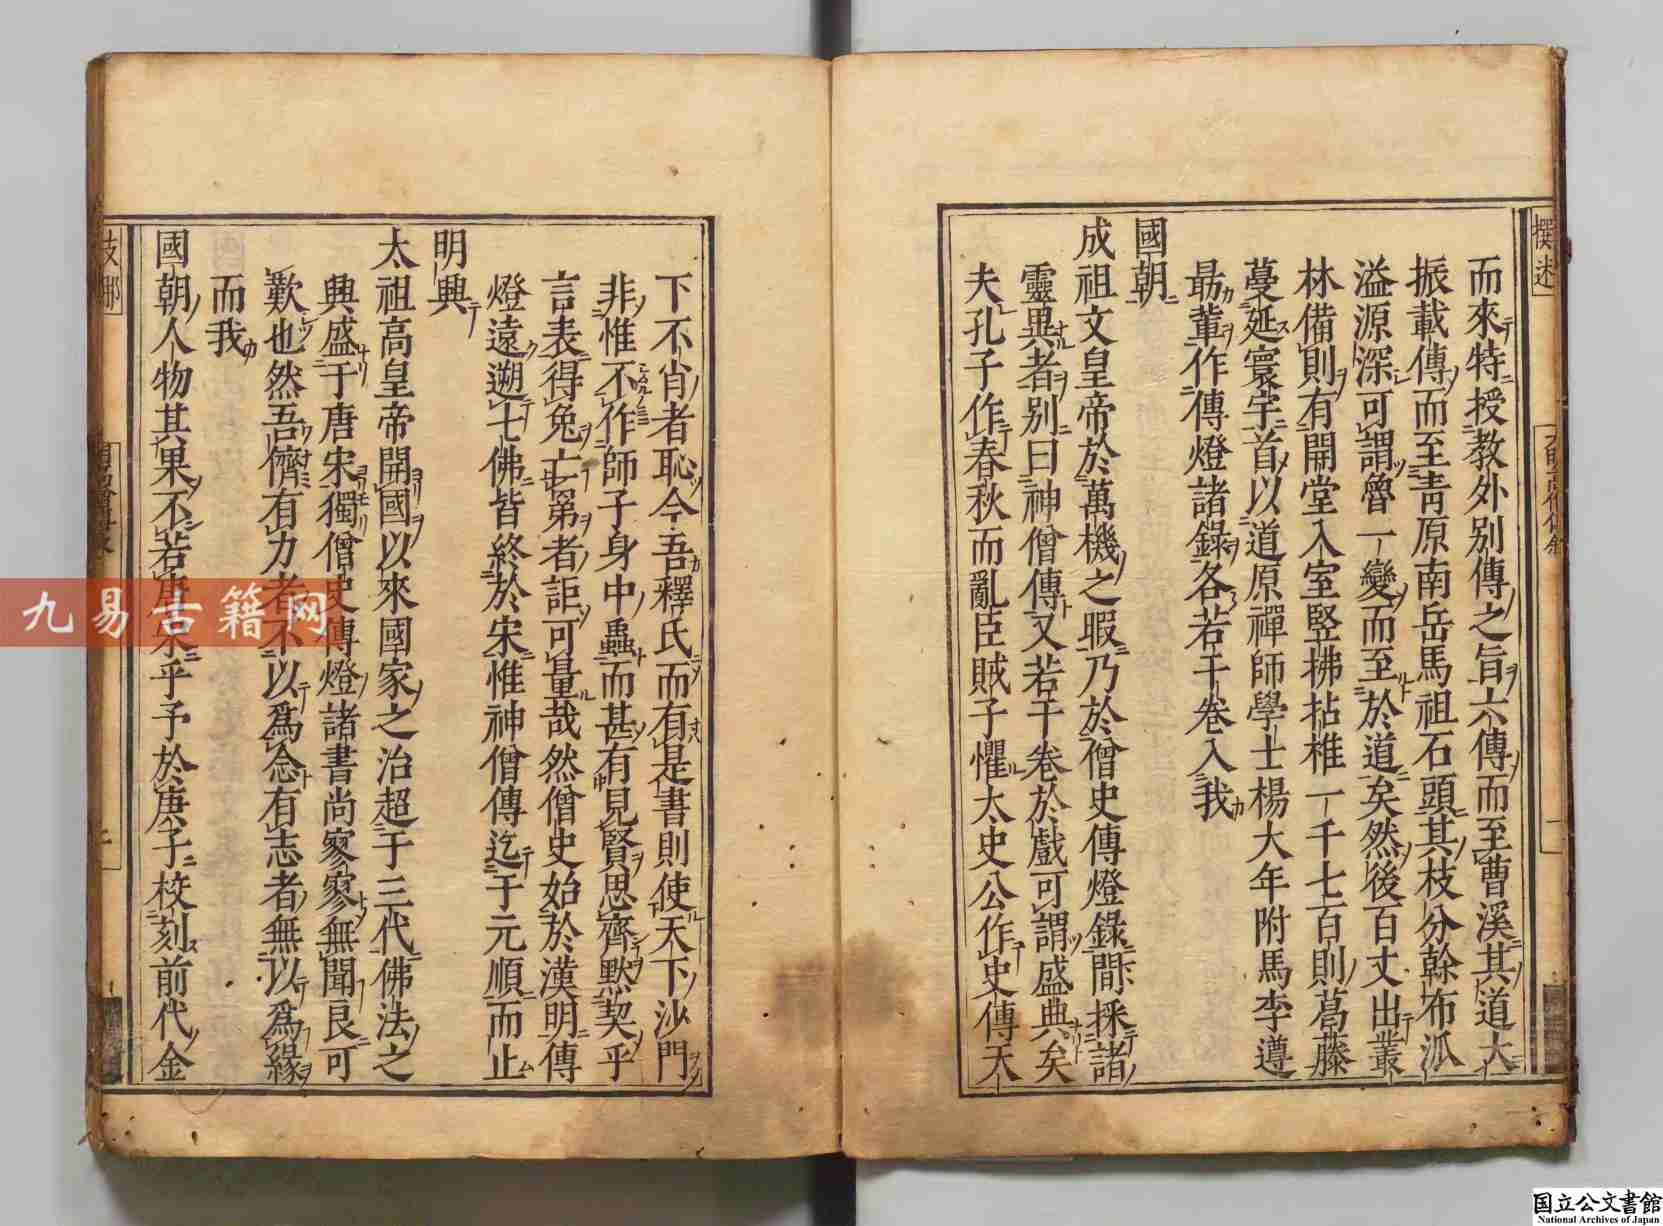 而來特授教外別傳之旨六傳而至曹溪其道大
振載傳而至青原南岳馬祖石頭其枝分榦布泒
溢源深可謂魯一變而至於道矣然後百丈出叢
林備則有開堂入室竪拂拈椎一千七百則葛藤
蔓延寰宇首以道原禪師學士楊大年附馬李遵
最輩作傳燈諸錄各若干卷入我
國朝
成祖文皇帝於萬機之暇乃於僧史傳燈錄間採諸
靈異者別曰神僧傳又若干卷於戲可謂盛典矣
夫孔子作春秋而亂臣賊子懼太史公作史傳天
下不肖者恥今吾釋氏而有是書則使天下沙門
非惟不作師子身中蟲而甚有見賢思齊默契乎
言表得兔亡第者詎可量哉然僧史始於漢明傳
燈遠遡七佛皆終於宋惟神僧傳迄于元順而止
明興
太祖高皇帝開國以來國家之治超于三代佛法之
興盛于唐宋獨僧史傳燈諸書尚寥寥無聞良可
歎也然吾儕有力者不以爲念有志者無以爲緣
而我
國朝人物其果不若唐宋乎予於庚子校刻前代金
九易古籍网
国立公文書館
National Archives of Japan